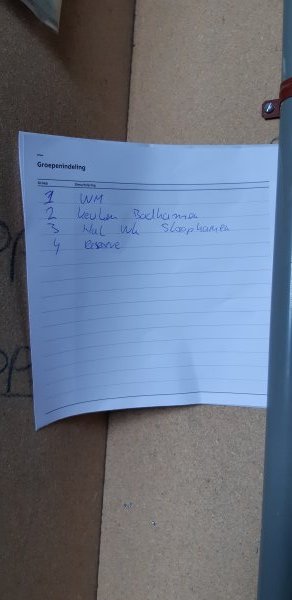 Groepenindeling
Groep Omschrijving
1 WM
2 Keuken Badkamer
3 Hal Wk Slaapkamer
4 Reserve